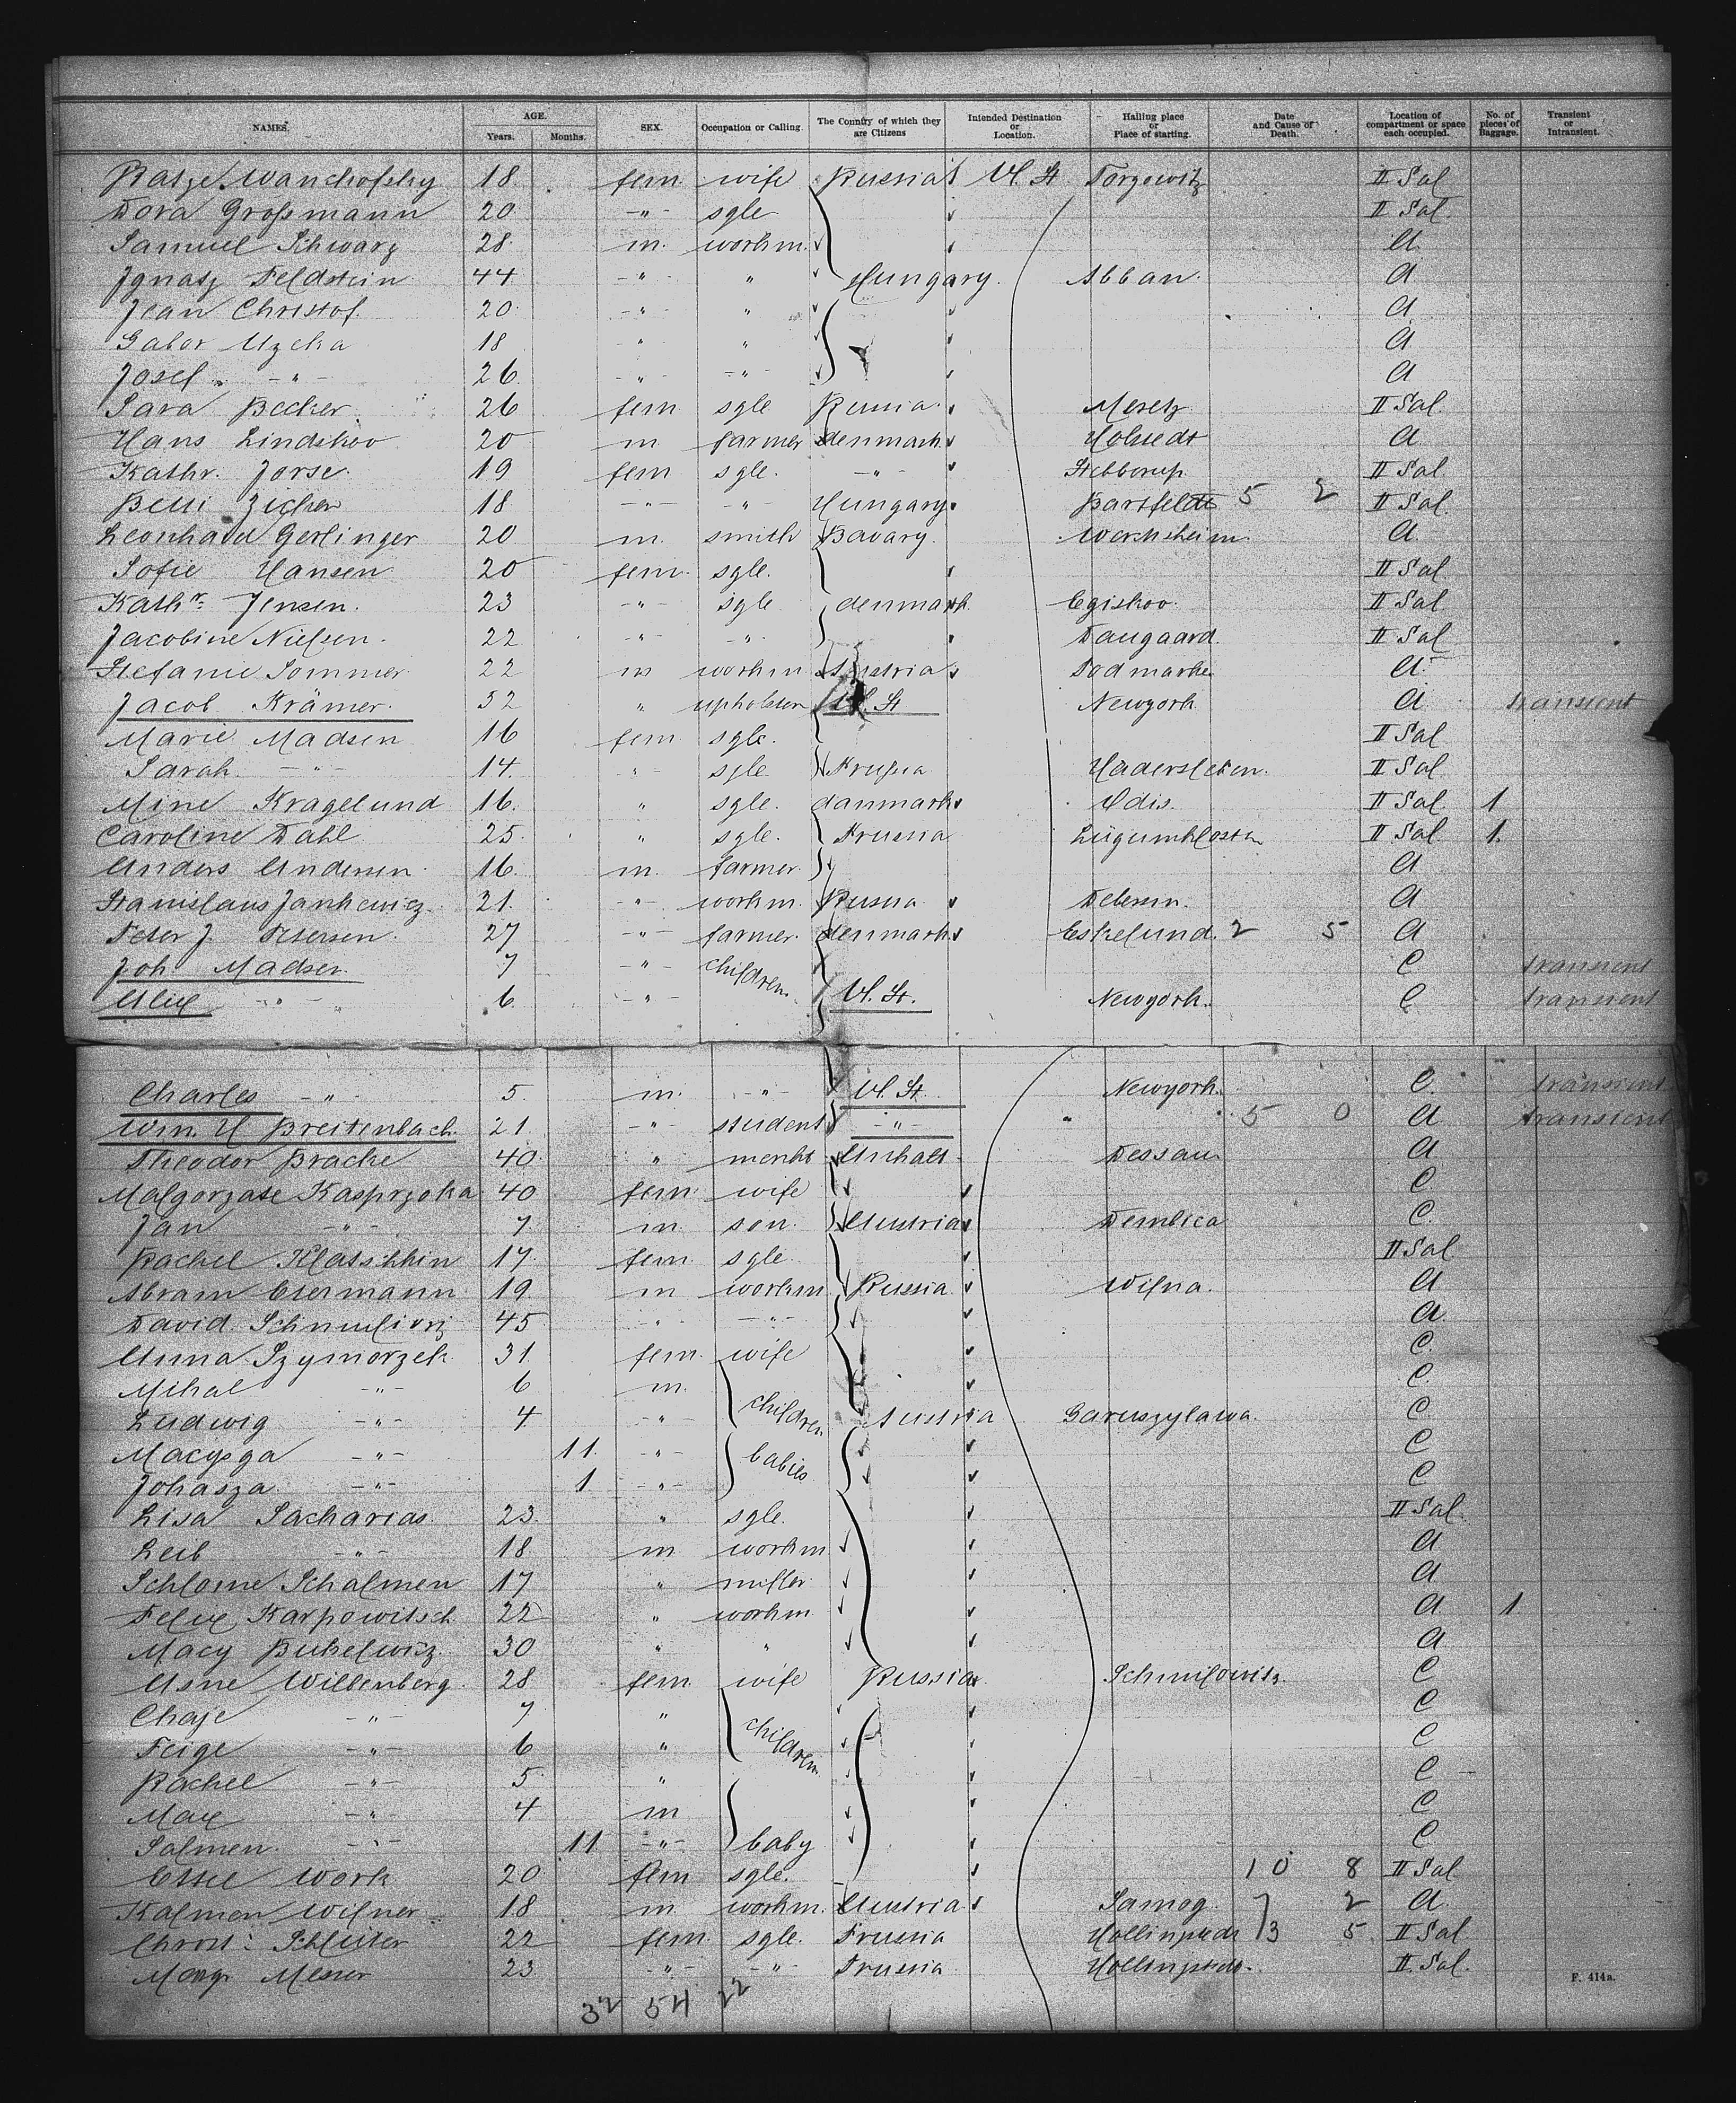 NAMES. AGE. Years. Months. SEX. Occupation or Calling. The Country of which they are Citizens Intended Destination or Location. Hailing place or Place of starting. Date and Cause of Death. Location of compartment or space each occupied. No. of pieces of Baggage. Transient or Intransient.
18 fem wife Russia U. St II Sal
Dora Großmann 20 -"- sgle II Sal.
Samuel Schwarz 28 m. workm. a
Ignatz Feldstein 44 -"- " Hungary. Abban a
Jean Christof 20 -"- " a
Gabor Uzcka 18 -"- " a
Josef -"- 26 -"- -"- a
Sara Becker 26 fem sgle Russia Meretz II Sal.
Hans Lindskov 20 m farmer denmark Holstedt a
Kathr. Jorse 19 fem sgle. -"- Stebborup II Sal
Betti Zucker 18 -"- -"- Hungary Bartfeldt 5 2 II Sal.
Leonhard Gerlinger 20 m. smith Bavary. a.
Sofie Hansen 20 fem. sgle. II Sal
Kathr. Jensen. 23 -"- sgle denmark Egiskov II Sal
Jacobine Nielsen. 22 -"- -"- Daugaard. II Sal
Stefanie Sommer 22 m workm Austria a.
Jacob Krämer. 32 " upholster U. St Newyork a transient
Marie Madsen 16 fem sgle. II Sal
Sarah -"- 14. " - sgle Prussia Hadersleben. II Sal
Mine Kragelund 16. " sgle. danmark Odis. II Sal. 1
Caroline Dahl 25. " sgle. Prussia Lügumkloster II Sal 1.
Anders Andersen 16. m. farmer. a
Stanislaus Jankewicz. 21. -"- workm. Russia a
Peter J. Petersen. 27 -"- farmer. denmark Eskelund. 2 5 a
Joh Madsen 7 -"- children C transient
Alex -"- 6. -"- U. St. Newyork. C transient
Charles -"- 5. m. -"- U. St. Newyork. C. transient
Wm. H Breitenbach. 21. -"- student -"- " 5 0 a transient
Theodor Bracke 40 " mercht Anhalt Dessau a
Malgorzate Kasprzoka 40 fem wife C
Jan -"- 7 m son. Austria Dembica C.
Rachel Klatschkin 17. fem. sgle. II Sal
Abram Esermann 19 m workm Russia Wilna. a
David Schmulwiz 45 -"- -"- a.
Anna Szymorzek. 31. fem. wife C.
Mihal -"- 6 m. C.
Ludwig -"- 4 " children Austria C.
Macysga -"- 11. -"- babies C
Johasza -"- 1 -"- C
Lisa Sacharias 23. " sgle. II Sal.
Leib -"- 18. m workm a
Schlome Schalmen 17 " miller a
Felix Karpowitsch 22 " workm a 1
Macy 30 " " a
Asne Willenberg. 28 fem wife Russia Schmilowitz. C
Chaje -"- 7 " C
Feige -"- 6 " children C
Rachel -"- 5 " C
Max -"- 4 m C
Salmen. -"- 11 -"- baby C
Essie Work 20 fem sgle. 10 8 II Sal
Kalmen Wilner. 18 m workm. Austria Samog. 2 a.
Christ: Schlüter 22 fem. sgle. Prussia Hollingstedt 3 5 II Sal
Margr Messer 23 -"- -"- Prussia Hollingstedt. II Sal.
32 54 22
F. 414a.